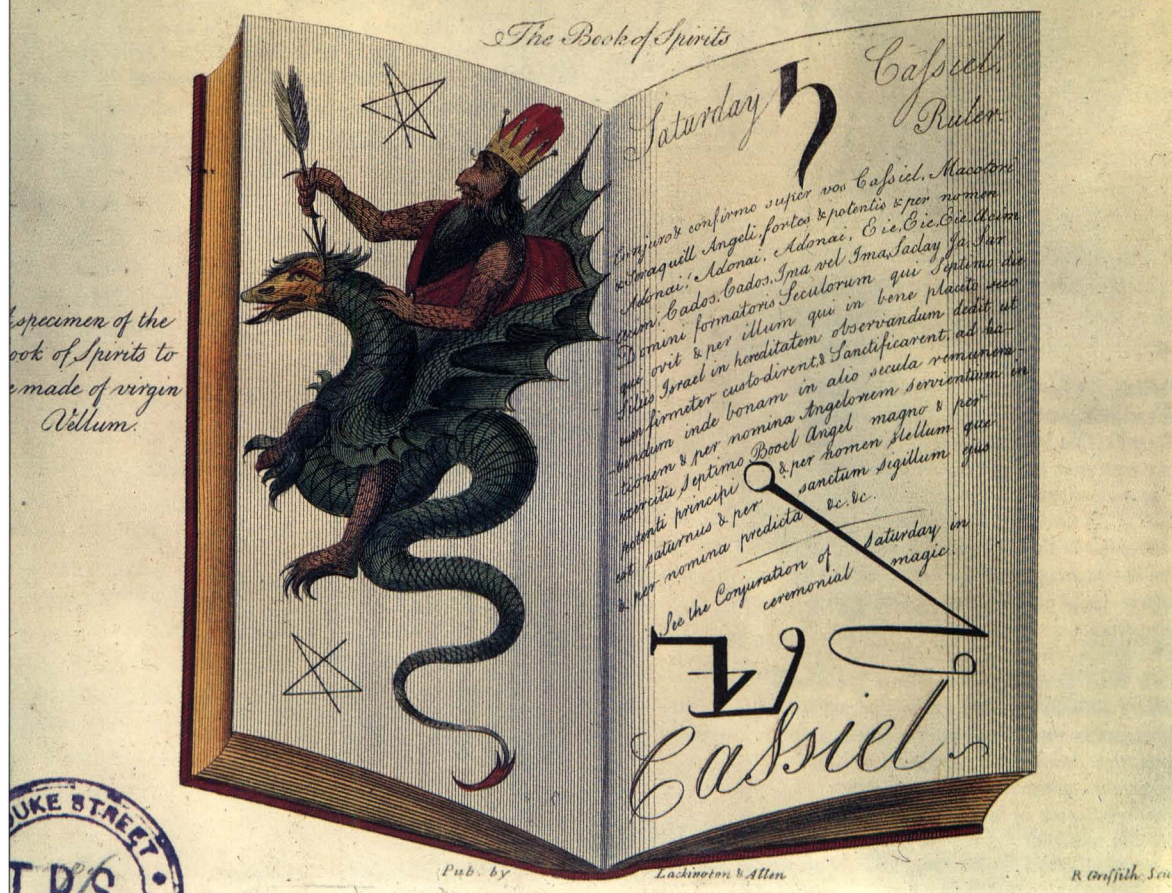 The Book of Spirits
specimen of the
ook of Spirits to
e made of virgin
Vellum.
Saturday ♄ Cassiel.
Ruler.
Conjuro & confirmo super vos Cassiel, Macotori
& Seraquiell Angeli, fortes & potentis & per nomen
Adonai, Adonai, Adonai, Eie, Eie, Eie, Acim
acim, Cados, Cados, Ima vel Ima, Saday Ja, Sar
Domini formatoris Seculorum qui Septimo die
que ovit & per illum qui in bene placito suo
filiis Israel in hereditatem observandum dedit ut
eum firmeter custodirent, & Sanctificarent, ad ha-
bendum inde bonam in alio secula remunera-
tionem & per nomina Angelorum servientium in
exercitu Septimo Booel Angel magno & per
potenti principi & per nomen stellum que
est saturnus & per sanctum sigillum ejus
& per nomina predicta &c. &c.
See the Conjuration of Saturday in
ceremonial magic.
Cassiel.
Pub. by Lackington & Allen
R Griffith Scu
DUKE STREET